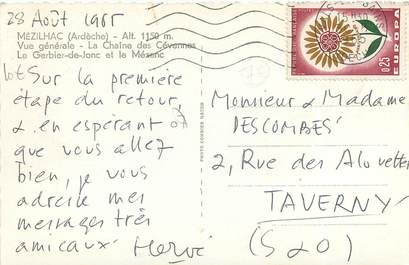 28 Août 1965
MEZILHAC (Ardèche) - Alt. 1150 m.
Vue générale - La Chaîne des Cévennes
Le Gerbier-de-Jonc et le Mézenc
Sur la première
étape du retour,
& en espérant
que vous allez
bien, je vous
adresse mes
messages très
amicaux Hervé
EUROPA
0,25
Monsieur & Madame
DESCOMBES
2, Rue des Alouettes
TAVERNY
(S & O)